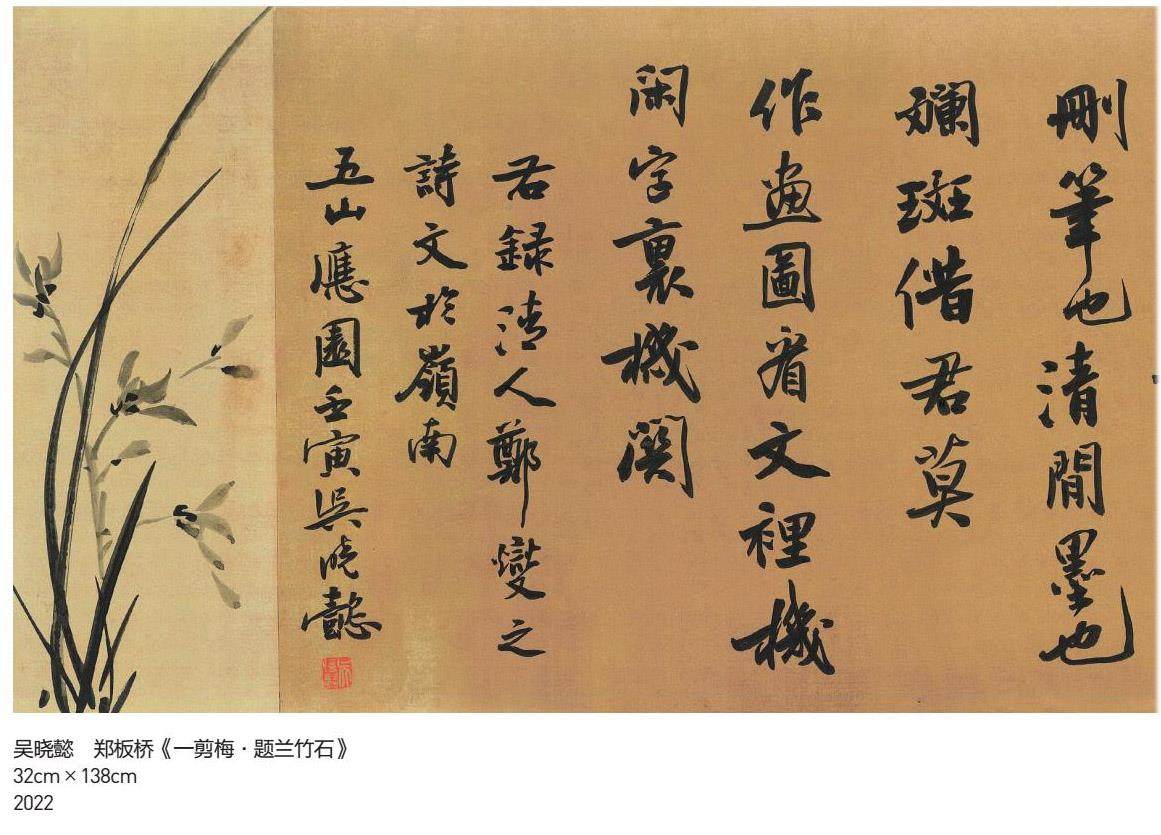 刪筆也清閒墨也
斕斑借君莫
作畫圖看文裡機
閑字裏機関
右録清人鄭燮之
詩文於嶺南
五山應園壬寅吳曉懿
吴晓懿　郑板桥《一剪梅·题兰竹石》
32cm×138cm
2022